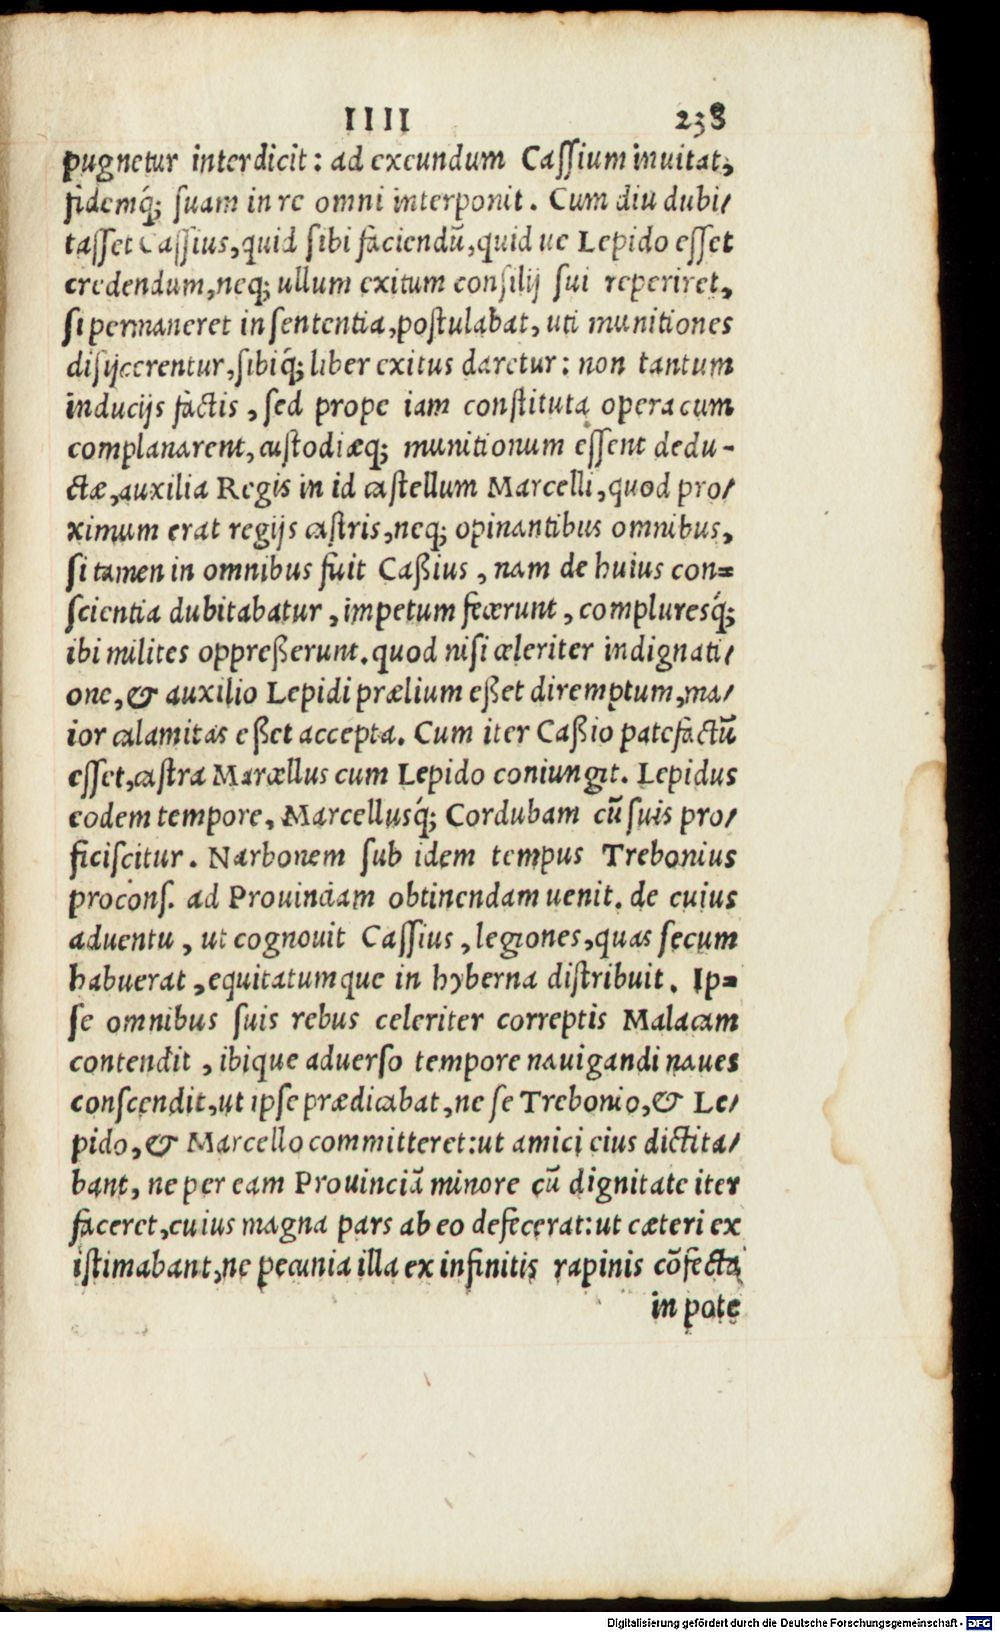 IIII 238
pugnetur interdicit: ad exeundum Cassium inuitat,
fidemq́; suam in re omni interponit. Cum diu dubi/
tasset Cassius, quid sibi faciendũ, quid ue Lepido esset
credendum, neq; ullum exitum consilij sui reperiret,
si permaneret in sententia, postulabat, uti munitiones
disijcerentur, sibiq́; liber exitus daretur: non tantum
inducijs factis, sed prope iam constituta opera cum
complanarent, custodiæq; munitionum essent dedu-
ctæ, auxilia Regis in id castellum Marcelli, quod pro/
ximum erat regijs castris, neq; opinantibus omnibus,
si tamen in omnibus fuit Caßius, nam de huius con=
scientia dubitabatur, impetum fecerunt, compluresq́;
ibi milites oppreßerunt. quod nisi celeriter indignati/
one, & auxilio Lepidi prælium eßet diremptum, ma/
ior calamitas eßet accepta. Cum iter Caßio patefactũ
esset, castra Marcellus cum Lepido coniungit. Lepidus
eodem tempore, Marcellusq́; Cordubam cũ suis pro/
ficiscitur. Narbonem sub idem tempus Trebonius
procons. ad Prouinciam obtinendam uenit. de cuius
aduentu, ut cognouit Cassius, legiones, quas secum
habuerat, equitatumque in hyberna distribuit. Ip=
se omnibus suis rebus celeriter correptis Malacam
contendit, ibique aduerso tempore nauigandi naues
conscendit, ut ipse prædicabat, ne se Trebonio, & Le/
pido, & Marcello committeret: ut amici eius dictita/
bant, ne per eam Prouinciã minore cũ dignitate iter
faceret, cuius magna pars ab eo defecerat: ut cæteri ex
istimabant, ne pecunia illa ex infinitis rapinis cõfecta
in pote
Digitalisierung gefördert durch die Deutsche Forschungsgemeinschaft - DFG